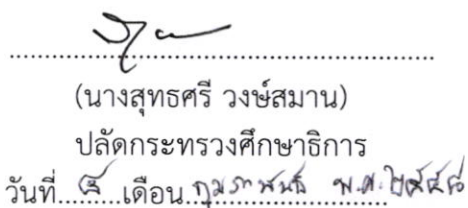 (นางสุทธศรี วงษ์สมาน)
ปลัดกระทรวงศึกษาธิการ
วันที่.......เดือน กุมภาพันธ์ พ.ศ.